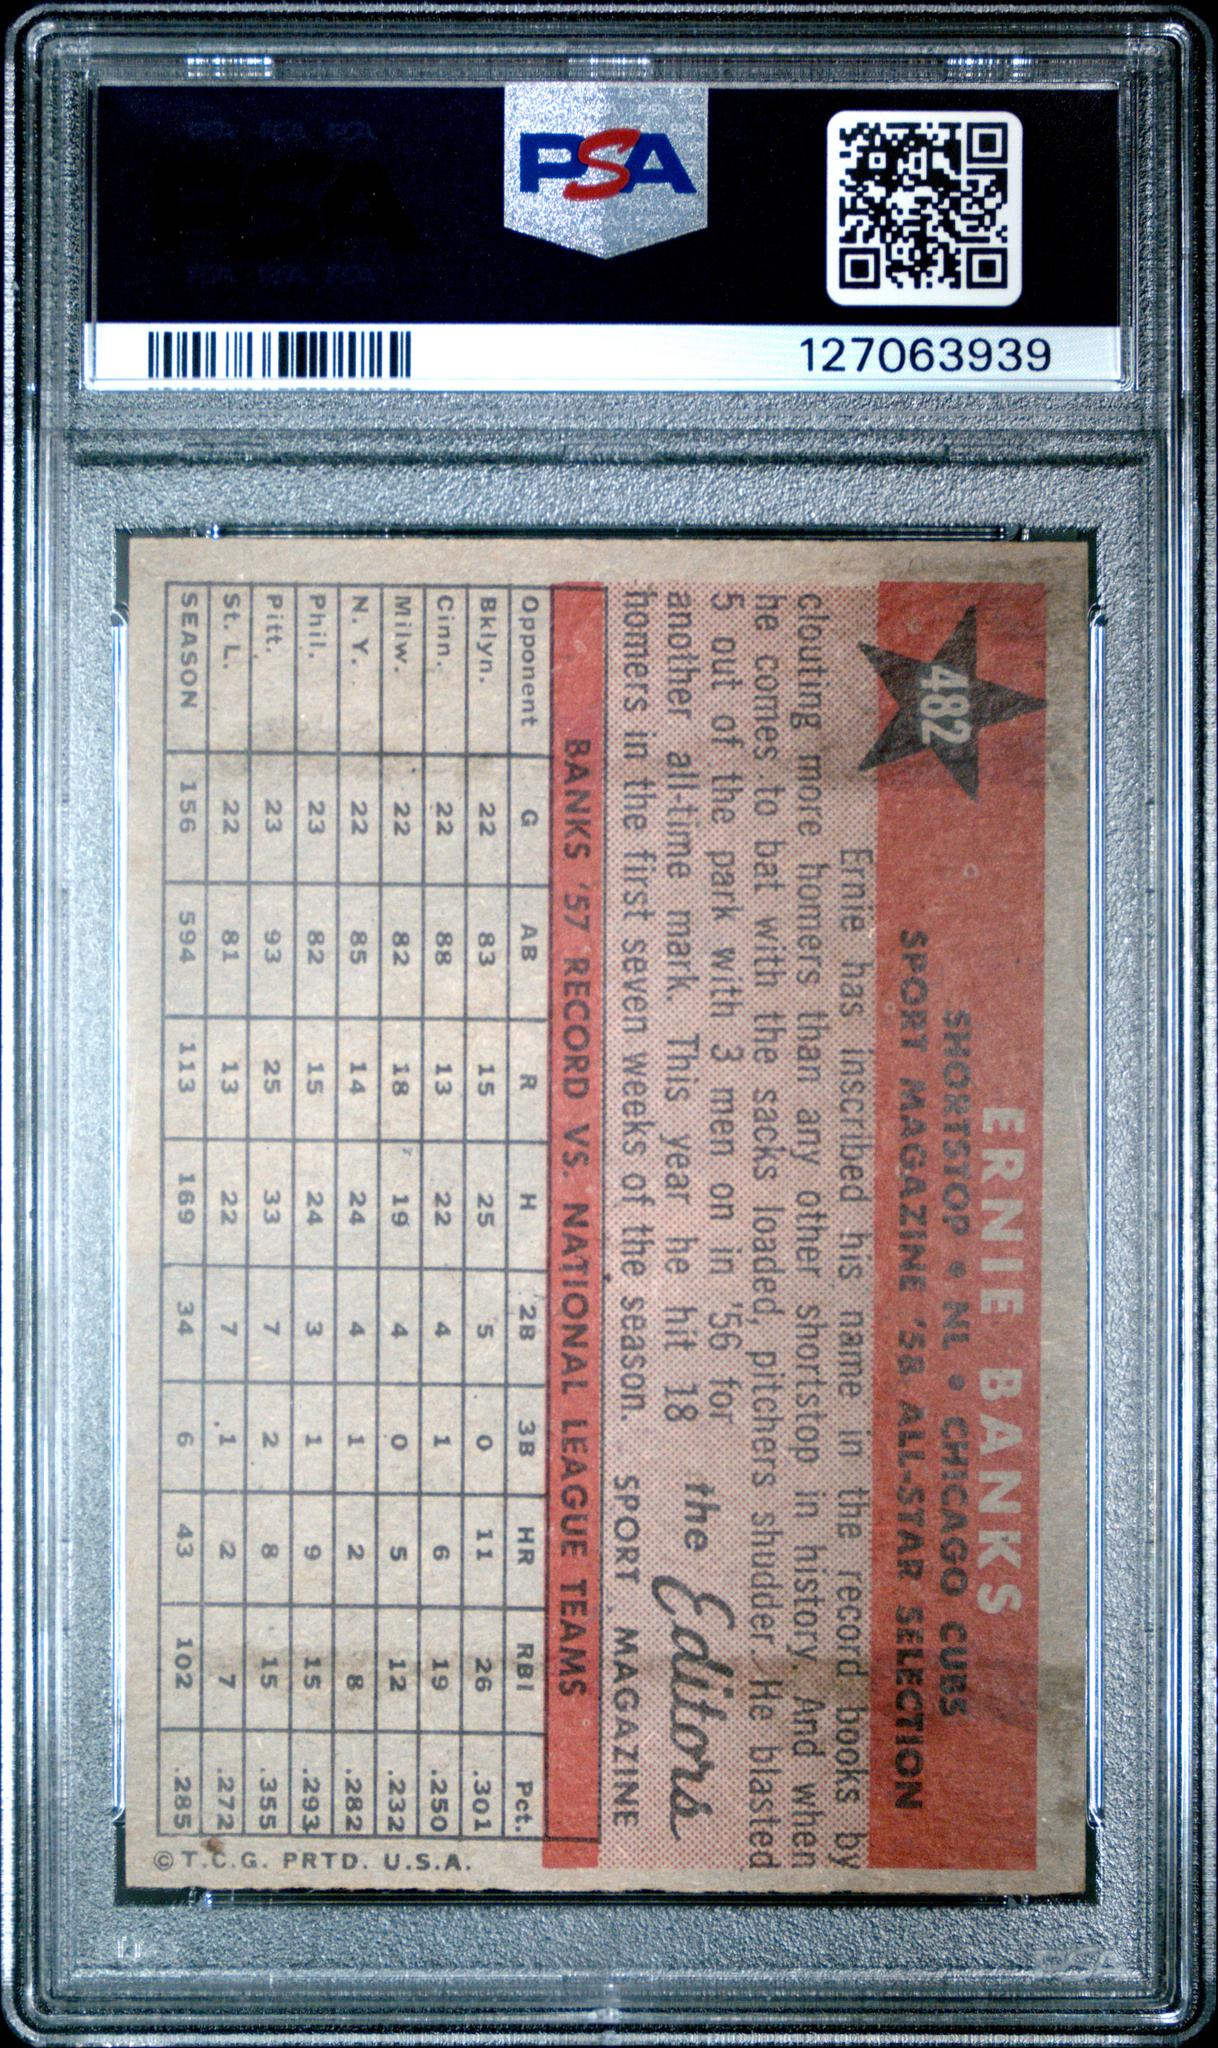 PSA
127063939
482
ERNIE BANKS
SHORTSTOP • NL • CHICAGO CUBS
SPORT MAGAZINE '58 ALL-STAR SELECTION
Ernie has inscribed his name in the record books by
clouting more homers than any other shortstop in history. And when
he comes to bat with the sacks loaded, pitchers shudder. He blasted
5 out of the park with 3 men on in '56 for
another all-time mark. This year he hit 18
homers in the first seven weeks of the season.
the Editors
SPORT MAGAZINE
BANKS '57 RECORD VS. NATIONAL LEAGUE TEAMS
Opponent G AB R H 2B 3B HR RBI Pct.
Bklyn. 22 83 15 25 5 0 11 26 .301
Cinn. 22 88 13 22 4 1 6 19 .250
Milw. 22 82 18 19 4 0 5 12 .232
N. Y. 22 85 14 24 4 1 2 8 .282
Phil. 23 82 15 24 3 1 9 15 .293
Pitt. 23 93 25 33 7 2 8 15 .355
St. L. 22 81 13 22 7 1 2 7 .272
SEASON 156 594 113 169 34 6 43 102 .285
© T.C.G. PRTD. U.S.A.